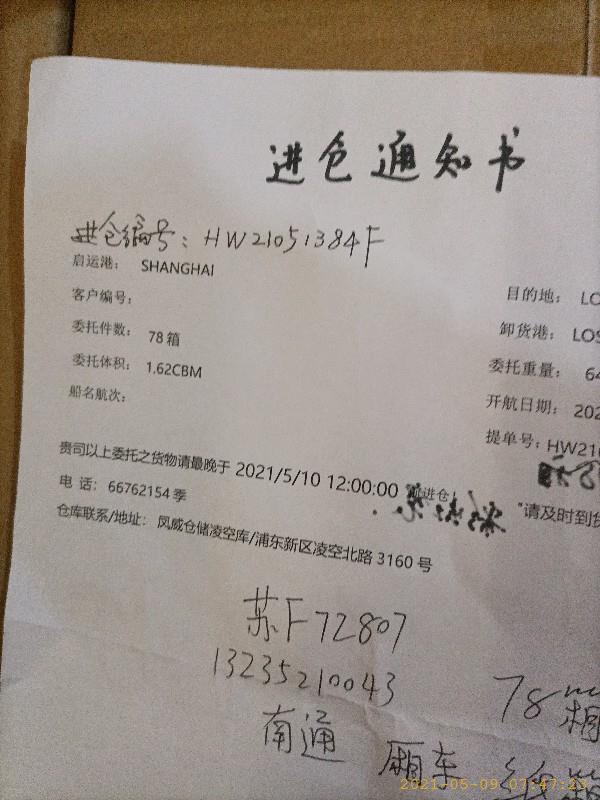 进仓通知书
进仓编号：HW21051384F
启运港： SHANGHAI
目的地： LO
客户编号：
卸货港： LOS
委托件数： 78箱
委托重量： 64
委托体积： 1.62CBM
开航日期： 202
船名航次：
提单号：HW210
贵司以上委托之货物请最晚于 2021/5/10 12:00:00 前进仓
"请及时到货
电 话： 66762154 季
仓库联系/地址： 凤威仓储凌空库/浦东新区凌空北路 3160 号
苏F72807
13235210043
78箱
南通 厢车 纸箱
2021-05-09 07:47:23